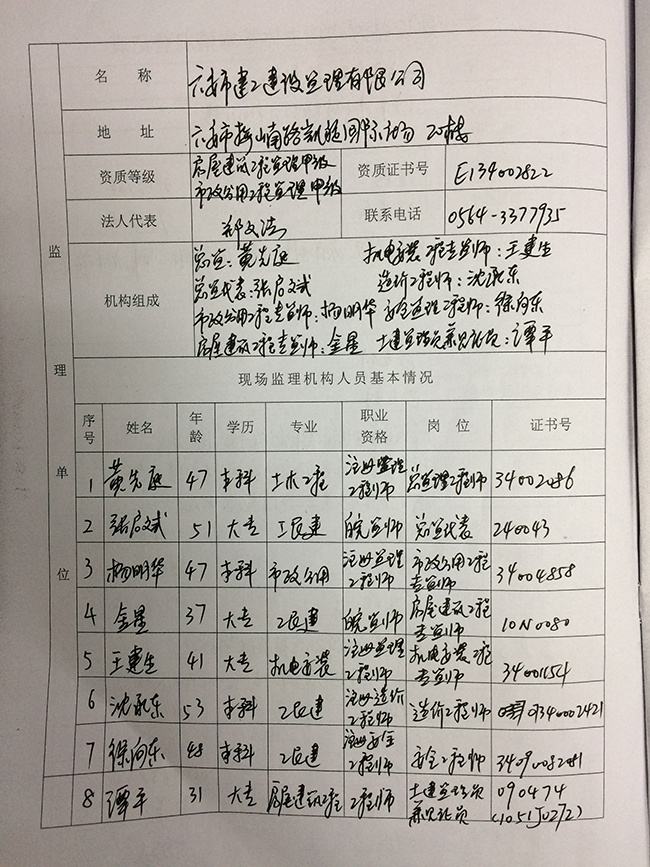 监理单位
名称 六安市建工建设监理有限公司
地址 六安市梅山南路凯旋国际广场 20栋
资质等级 房屋建筑工程监理甲级 资质证书号 E134002822
市政公用工程监理甲级
法人代表 郑文法 联系电话 0564-3377935
机构组成 总监：黄先庭 机电安装工程专监师：王建生
总监代表：张启文斌 造价工程师：沈永东
市政公用工程专监师：杨明华 安全监理工程师：徐向东
房屋建筑工程专监师：金星 土建监理员兼见证员：谭平
现场监理机构人员基本情况
序号 姓名 年龄 学历 专业 职业资格 岗位 证书号
1 黄先庭 47 本科 土木工程 注册监理工程师 总监理工程师 34002086
2 张启斌 51 大专 工民建 皖监师 总监代表 240043
3 杨明华 47 本科 市政公用 注册监理工程师 市政公用工程专监师 34004858
4 金星 37 大专 工民建 皖监师 房屋建筑工程专监师 10N0080
5 王建生 41 大专 机电安装 注册监理工程师 机电安装工程专监师 34001154
6 沈永东 53 本科 工民建 注册造价工程师 造价工程师 09340002421
7 徐向东 48 本科 工民建 注册安全工程师 安全工程师 34090082081
8 谭平 31 大专 房屋建筑工程 工程师 土建监理员兼见证员 090474
(1051J0272)